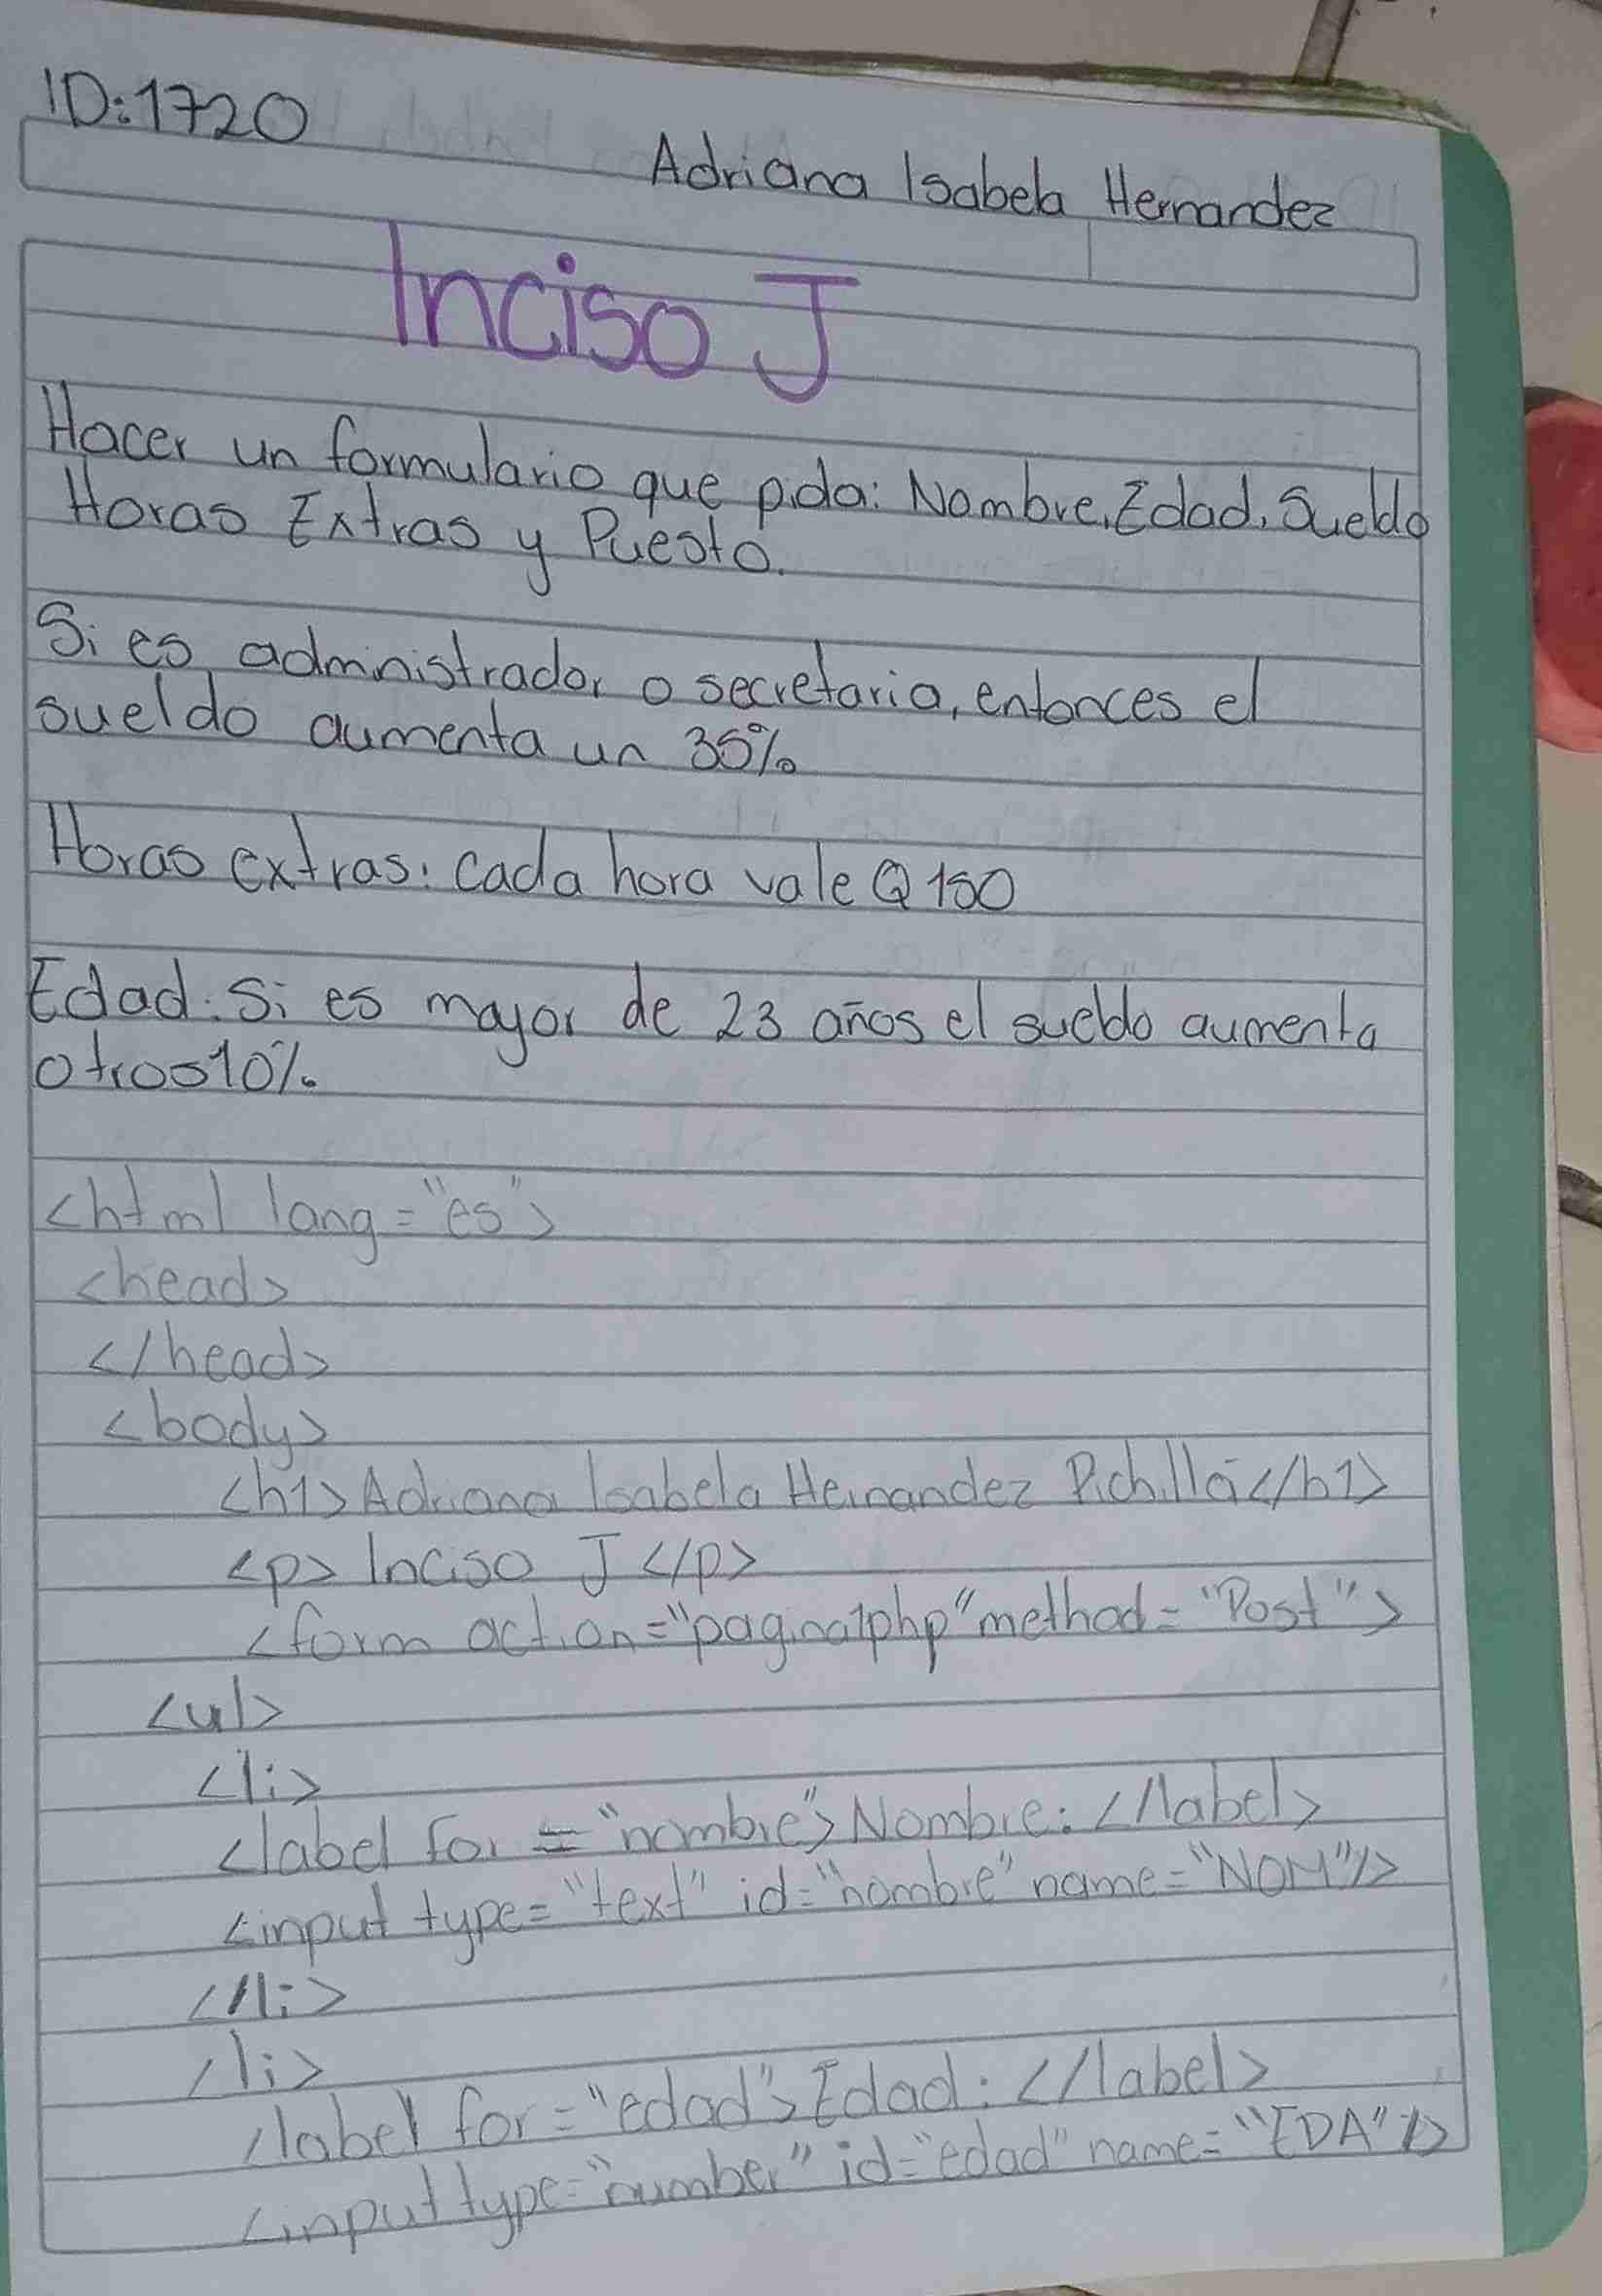 ID:1720
Adriana Isabela Hernandez
Inciso J
Hacer un formulario que pida: Nombre, Edad, Sueldo
Horas Extras y Puesto.
Si es administrador o secretaria, entonces el
sueldo aumenta un 35%
Horas extras: cada hora vale Q150
Edad: Si es mayor de 23 años el sueldo aumenta
otros 10%.
<html lang="es">
<head>
</head>
<body>
<h1>Adriana Isabela Hernandez Pichillá</h1>
<p>Inciso J</p>
<form action="pagina1php" method="Post">
<ul>
<li>
<label for="nombre">Nombre:</label>
<input type="text" id="nombre" name="NOM"/>
</li>
<li>
<label for="edad">Edad:</label>
<input type="number" id="edad" name="EDA"/>